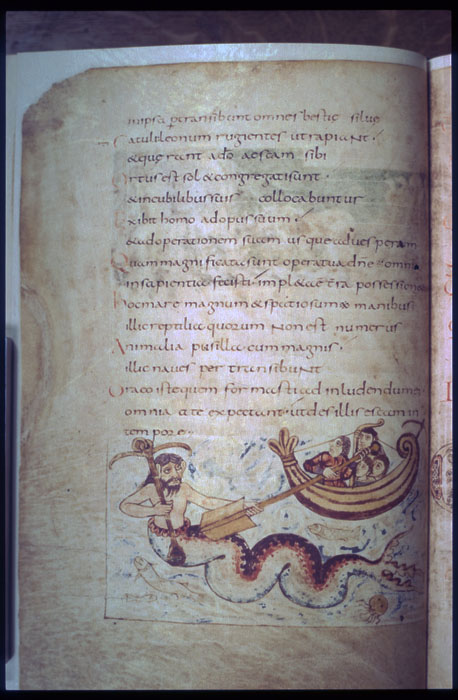 inipsa ꝑtransibunt omnes bestię siluę
Catuli leonum rugientes utrapiant.
& quęrant adō aescam sibi
Ortus est sol & congregati sunt.
& incubilibus suis collocabuntur
Exibit homo adopus suum.
& adoperationem suam usque aduesperam
Quam magnificata sunt opera tua dn̄e omnia
insapientia fecisti. impl&a ē t̄ra possessione
hoc mare magnum & spatiosum manibus
illic reptilia quorum non est numerus
Animalia pusilla cum magnis.
illic naues per transibunt
Draco iste quem formasti ad inludendum ei.
omnia a te expectant. ut des illis escam in
tempore.